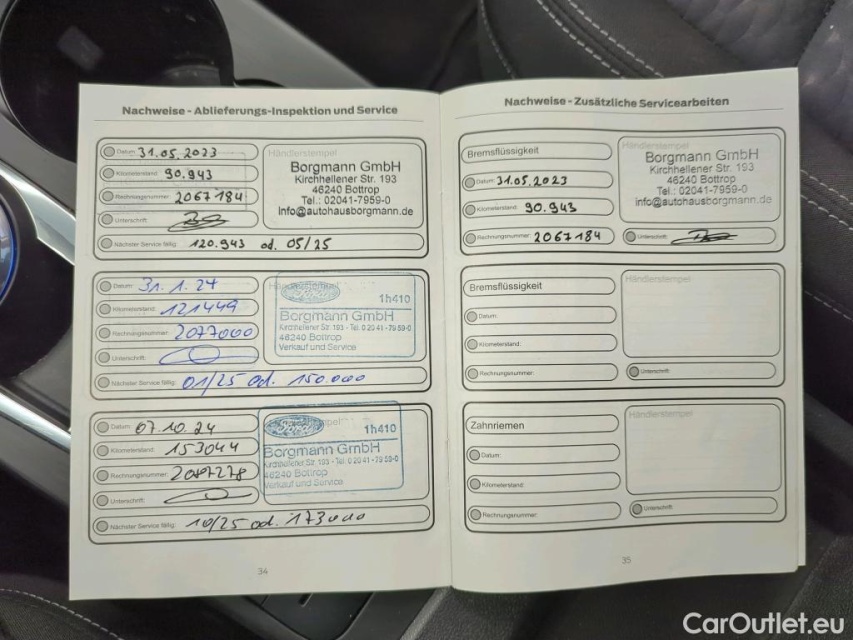 Nachweise - Ablieferungs-Inspektion und Service
Datum: 31.05.2023
Kilometerstand: 90.943
Rechnungsnummer: 2067184
Unterschrift:
Nächster Service fällig: 120.943 od. 05/25
Händlerstempel
Borgmann GmbH
Kirchhellener Str. 193
46240 Bottrop
Tel.: 02041-7959-0
info@autohausborgmann.de
Datum: 31.1.24
Kilometerstand: 121449
Rechnungsnummer: 2077000
Unterschrift:
Nächster Service fällig: 01/25 od. 150.000
Ford
1h410
Borgmann GmbH
Kirchhellener Str. 193 - Tel. 0 20 41 - 79 59-0
46240 Bottrop
Verkauf und Service
Datum: 07.10.24
Kilometerstand: 153044
Rechnungsnummer: 2087278
Unterschrift:
Nächster Service fällig: 10/25 od. 173000
Ford
1h410
Borgmann GmbH
Kirchhellener Str. 193 - Tel. 0 20 41 - 79 59-0
46240 Bottrop
Verkauf und Service
34
Nachweise - Zusätzliche Servicearbeiten
Bremsflüssigkeit
Datum: 31.05.2023
Kilometerstand: 90.943
Rechnungsnummer: 2067184
Händlerstempel
Borgmann GmbH
Kirchhellener Str. 193
46240 Bottrop
Tel.: 02041-7959-0
info@autohausborgmann.de
Unterschrift:
Bremsflüssigkeit
Datum:
Kilometerstand:
Rechnungsnummer:
Händlerstempel
Unterschrift:
Zahnriemen
Datum:
Kilometerstand:
Rechnungsnummer:
Händlerstempel
Unterschrift:
35
CarOutlet.eu